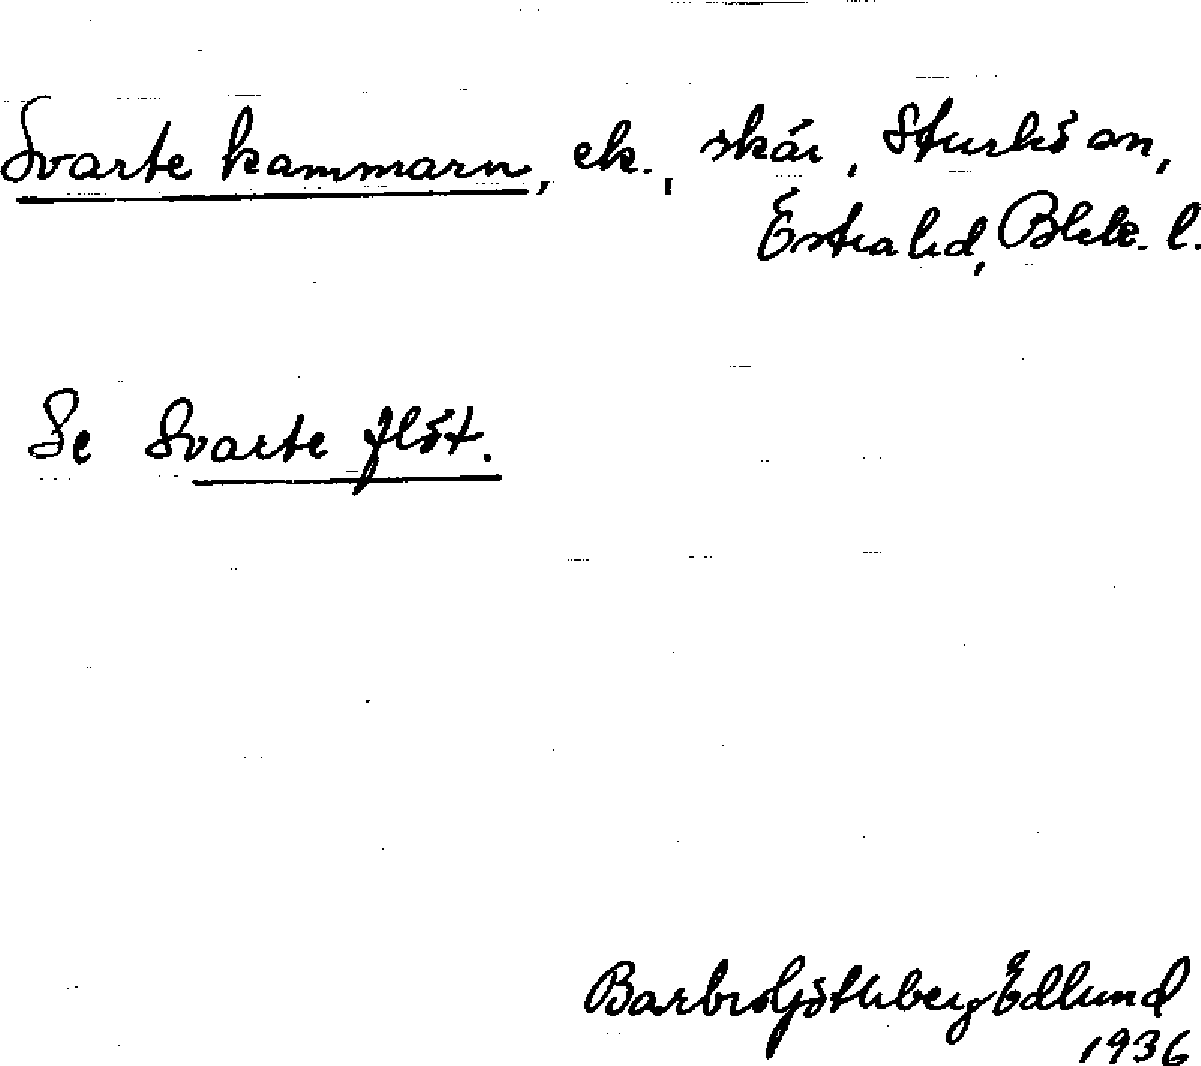 Svarte kammarn, ek., skär, Sturkö sn,
Östra hd, Blek. l.
Se Svarte flöt.
Barbro Göthberg Edlund
1936